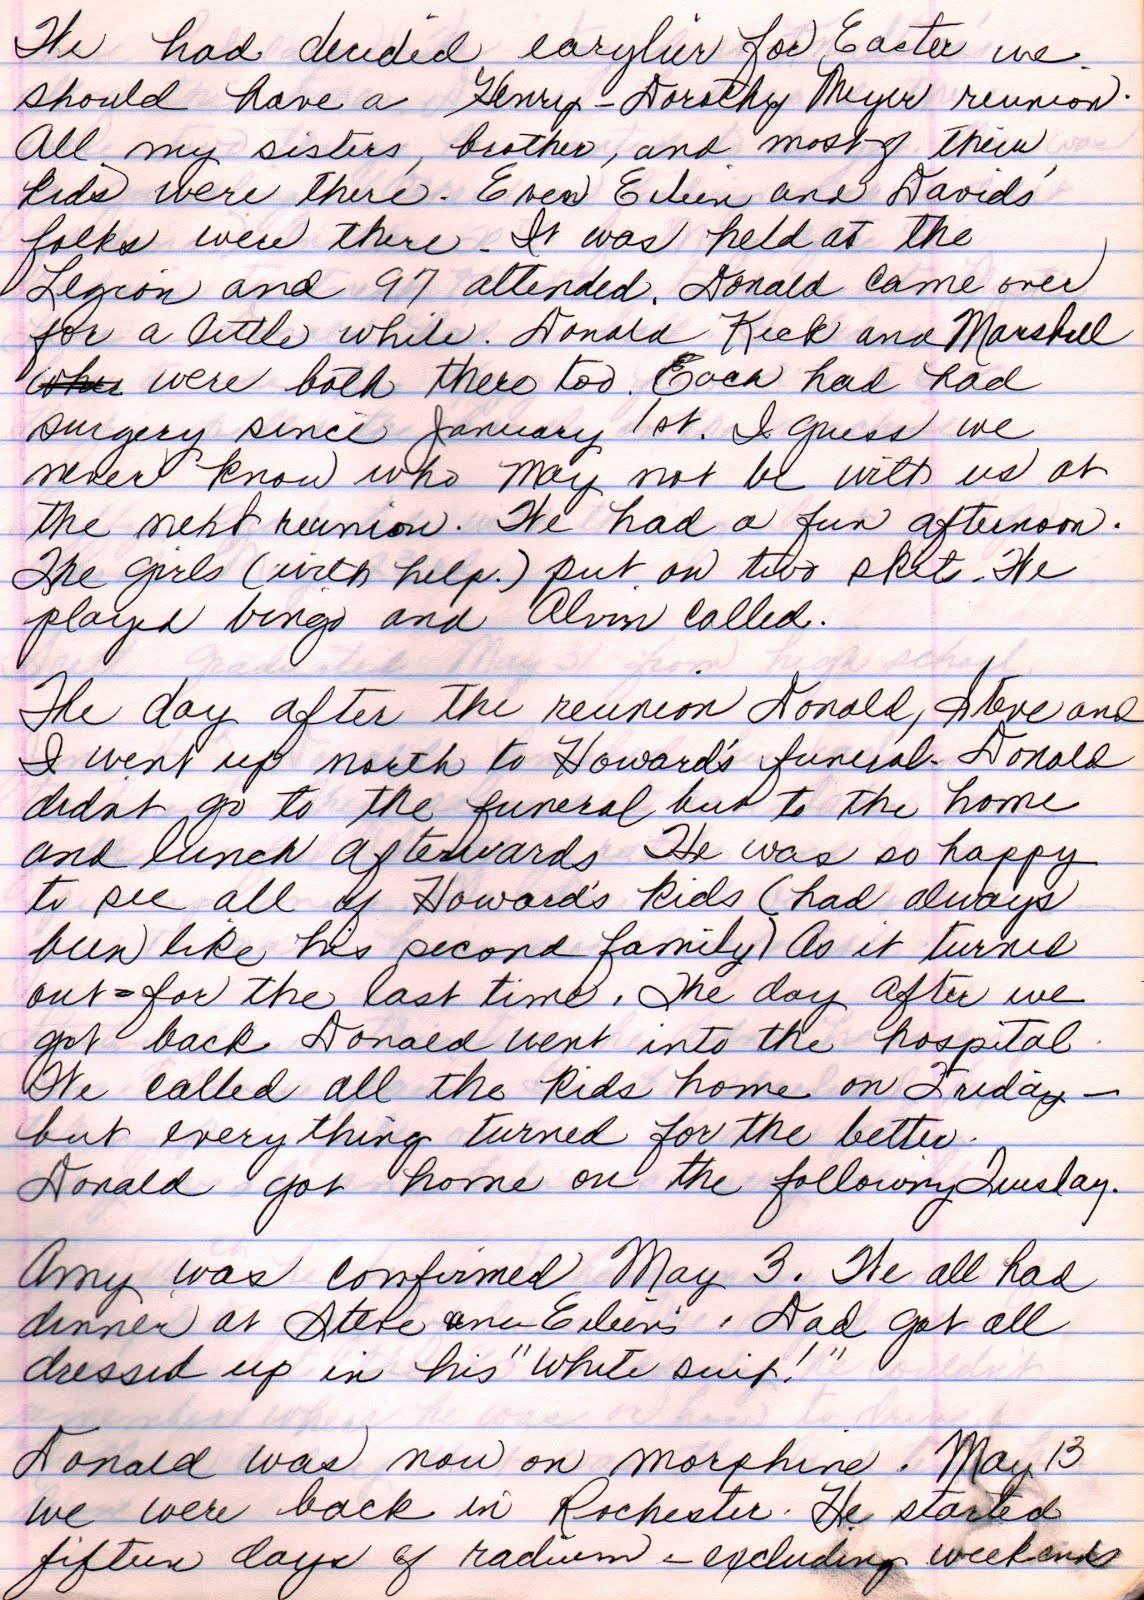 We had decided earylier for Easter we
should have a Henry-Dorothy Meyer reunion.
All my sisters, brother, and most of their
kids were there. Even Eileen and Davids'
folks were there. It was held at the
Legion and 97 attended. Donald came over
for a little while. Donald Keck and Marshall
were both there too. Each had had
surgery since January 1st. I guess we
never know who may not be with us at
the next reunion. We had a fun afternoon.
The girls (with help.) put on two skits. We
played bingo and Alvin called.
The day after the reunion Donald, Steve and
I went up north to Howard's funeral. Donald
didn't go to the funeral but to the home
and lunch afterwards He was so happy
to see all of Howard's kids (had always
been like his second family) As it turned
out-for the last time. The day after we
got back Donald went into the hospital.
We called all the kids home on Friday-
but everything turned for the better.
Donald got home on the following Tuesday.
Amy was confirmed May 3. We all had
dinner at Steve and Eileen's. Dad got all
dressed up in his "white suit!"
Donald was now on morphine. May 13
we were back in Rochester. He started
fifteen days of radium - excluding weekends